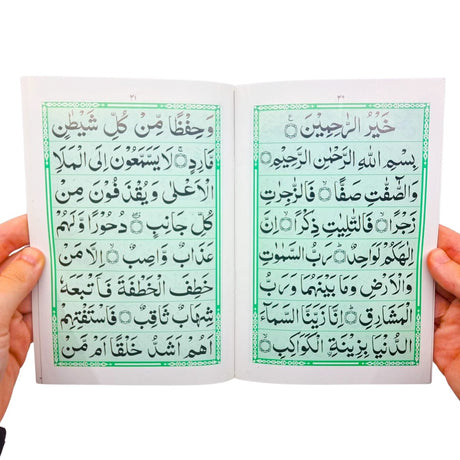 ٣٠
خَيْرُ الرّٰحِمِيْنَ ۝
بِسْمِ اللّٰهِ الرَّحْمٰنِ الرَّحِيْمِ ۝
وَالصّٰٓفّٰتِ صَفًّا ۝ فَالزّٰجِرٰتِ
زَجْرًا ۝ فَالتّٰلِيٰتِ ذِكْرًا ۝ اِنَّ
اِلٰهَكُمْ لَوَاحِدٌ ۝ رَبُّ السَّمٰوٰتِ
وَالْاَرْضِ وَمَا بَيْنَهُمَا وَرَبُّ
الْمَشَارِقِ ۝ اِنَّا زَيَّنَّا السَّمَآءَ
الدُّنْيَا بِزِيْنَةِ الْكَوَاكِبِ ۝
٣١
وَحِفْظًا مِّنْ كُلِّ شَيْطٰنٍ
مَّارِدٍ ۝ لَا يَسَّمَّعُوْنَ اِلَى الْمَلَاِ
الْاَعْلٰى وَيُقْذَفُوْنَ مِنْ
كُلِّ جَانِبٍ ۝ دُحُوْرًا وَّلَهُمْ
عَذَابٌ وَّاصِبٌ ۝ اِلَّا مَنْ
خَطِفَ الْخَطْفَةَ فَاَتْبَعَهٗ
شِهَابٌ ثَاقِبٌ ۝ فَاسْتَفْتِهِمْ
اَهُمْ اَشَدُّ خَلْقًا اَمْ مَّنْ